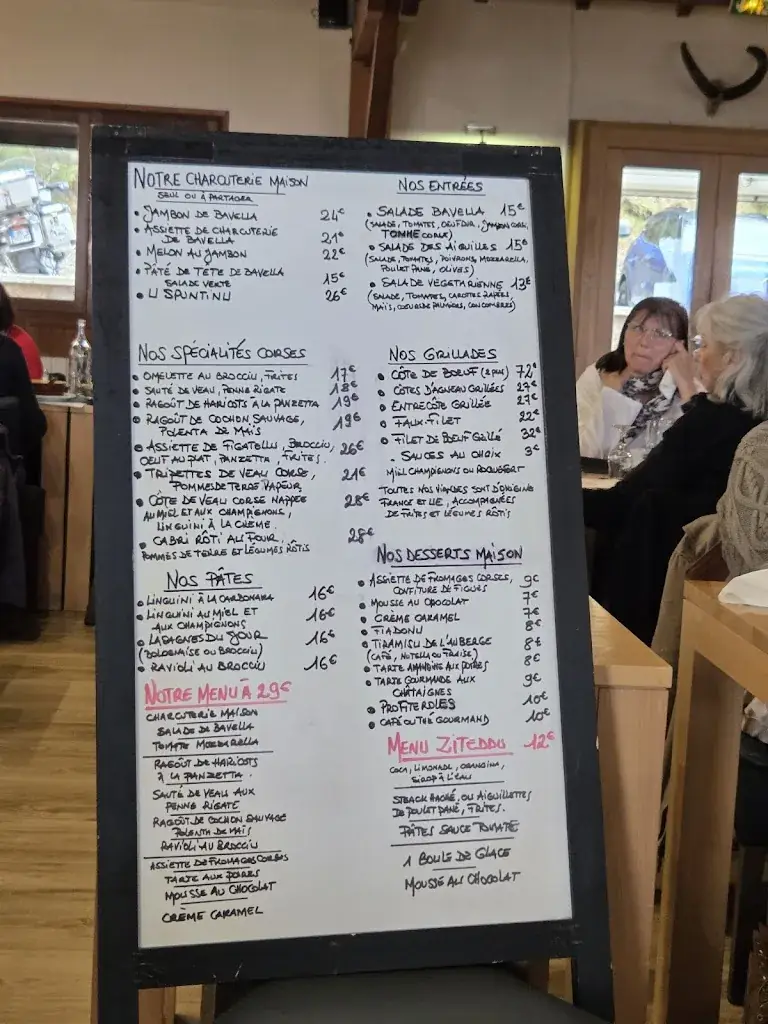 NOTRE CHARCUTERIE MAISON
SEUL OU À PARTAGER
• JAMBON DE BAVELLA 24€
• ASSIETTE DE CHARCUTERIE
DE BAVELLA 21€
• MELON AU JAMBON 22€
• PÂTÉ DE TETE DE BAVELLA
SALADE VERTE 15€
• U SPUNTINU 26€
NOS SPÉCIALITÉS CORSES
• OMELETTE AU BROCCIU, FRITES 17€
• SAUTÉ DE VEAU, PENNE RIGATE 18€
• RAGOÛT DE HARICOTS A LA PANZETTA 19€
• RAGOÛT DE COCHON SAUVAGE,
POLENTA DE MAÏS 19€
• ASSIETTE DE FIGATELLU, BROCCIU,
OEUF AU PLAT, PANZETTA, FRITES. 26€
• TRIPETTES DE VEAU CORSE,
POMMES DE TERRE VAPEUR 21€
• CÔTE DE VEAU CORSE NAPPÉE
AU MIEL ET AUX CHAMPIGNONS,
LINGUINI À LA CRÈME. 28€
• CABRI RÔTI AU FOUR,
POMMES DE TERRE ET LÉGUMES RÔTIS 28€
NOS PÂTES
• LINGUINI À LA CARBONARA 16€
• LINGUINI AU MIEL ET
AUX CHAMPIGNONS 16€
• LASAGNES DU JOUR
(BOLOGNAISE OU BROCCIU) 16€
• RAVIOLI AU BROCCIU 16€
NOTRE MENU À 29€
CHARCUTERIE MAISON
SALADE DE BAVELLA
TOMATE MOZZARELLA
RAGOÛT DE HARICOTS
À LA PANZETTA.
SAUTÉ DE VEAU AUX
PENNE RIGATE
RAGOÛT DE COCHON SAUVAGE
POLENTA DE MAÏS
RAVIOLI AU BROCCIU
ASSIETTE DE FROMAGES CORSES
TARTE AUX POIRES
MOUSSE AU CHOCOLAT
CRÈME CARAMEL
NOS ENTRÉES
• SALADE BAVELLA 15€
(SALADE, TOMATES, OEUF DUR, JAMBON CORSE,
TOMME CORSE)
• SALADE DES AIGUILLES 15€
(SALADE, TOMATES, POIVRONS, MOZZARELLA,
POULET PANÉ, OLIVES)
• SALADE VEGETARIENNE 13€
(SALADE, TOMATES, CAROTTES RAPÉES,
MAÏS, COEURS DE PALMIERS, CONCOMBRES)
NOS GRILLADES
• CÔTE DE BOEUF (2 PERS) 72€
• CÔTES D'AGNEAU GRILLÉES 27€
• ENTRECÔTE GRILLÉE 27€
• FAUX-FILET 22€
• FILET DE BOEUF GRILLÉ 32€
• SAUCES AU CHOIX 3€
MIEL CHAMPIGNONS OU ROQUEFORT
TOUTES NOS VIANDES SONT D'ORIGINE
FRANCE ET UE, ACCOMPAGNÉES
DE FRITES ET LÉGUMES RÔTIS
NOS DESSERTS MAISON
• ASSIETTE DE FROMAGES CORSES,
CONFITURE DE FIGUES 9€
• MOUSSE AU CHOCOLAT 7€
• CRÈME CARAMEL 7€
• FIADONU 8€
• TIRAMISU DE L'AUBERGE
(CAFÉ, NUTELLA OU FRAISE) 8€
• TARTE AMANDINE AUX POIRES 8€
• TARTE GOURMANDE AUX
CHÂTAIGNES 9€
• PROFITEROLES 10€
• CAFÉ OU THÉ GOURMAND 10€
MENU ZITEDDU 12€
COCA, LIMONADE, ORANGINA,
SIROP À L'EAU
STEACK HACHÉ, OU AIGUILLETTES
DE POULET PANÉ, FRITES.
PÂTES SAUCE TOMATE
1 BOULE DE GLACE
MOUSSE AU CHOCOLAT